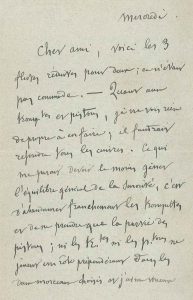 Mercredi
Cher ami, voici les 3
flûtes réduites pour deux; ce n'était
pas commode. — Quant aux
trompettes et pistons, je ne vois rien
de propre à en faire; il faudrait
refondre tous les cuivres. Ce qui
me paraît devoir le moins gêner
l'équilibre général de la sonorité, c'est
d'abandonner franchement les trompettes
et de ne prendre que la partie des
pistons; ni les tptes ni les pistons ne
jouent un rôle prépondérant dans les
morceaux choisis et j'aime mieux